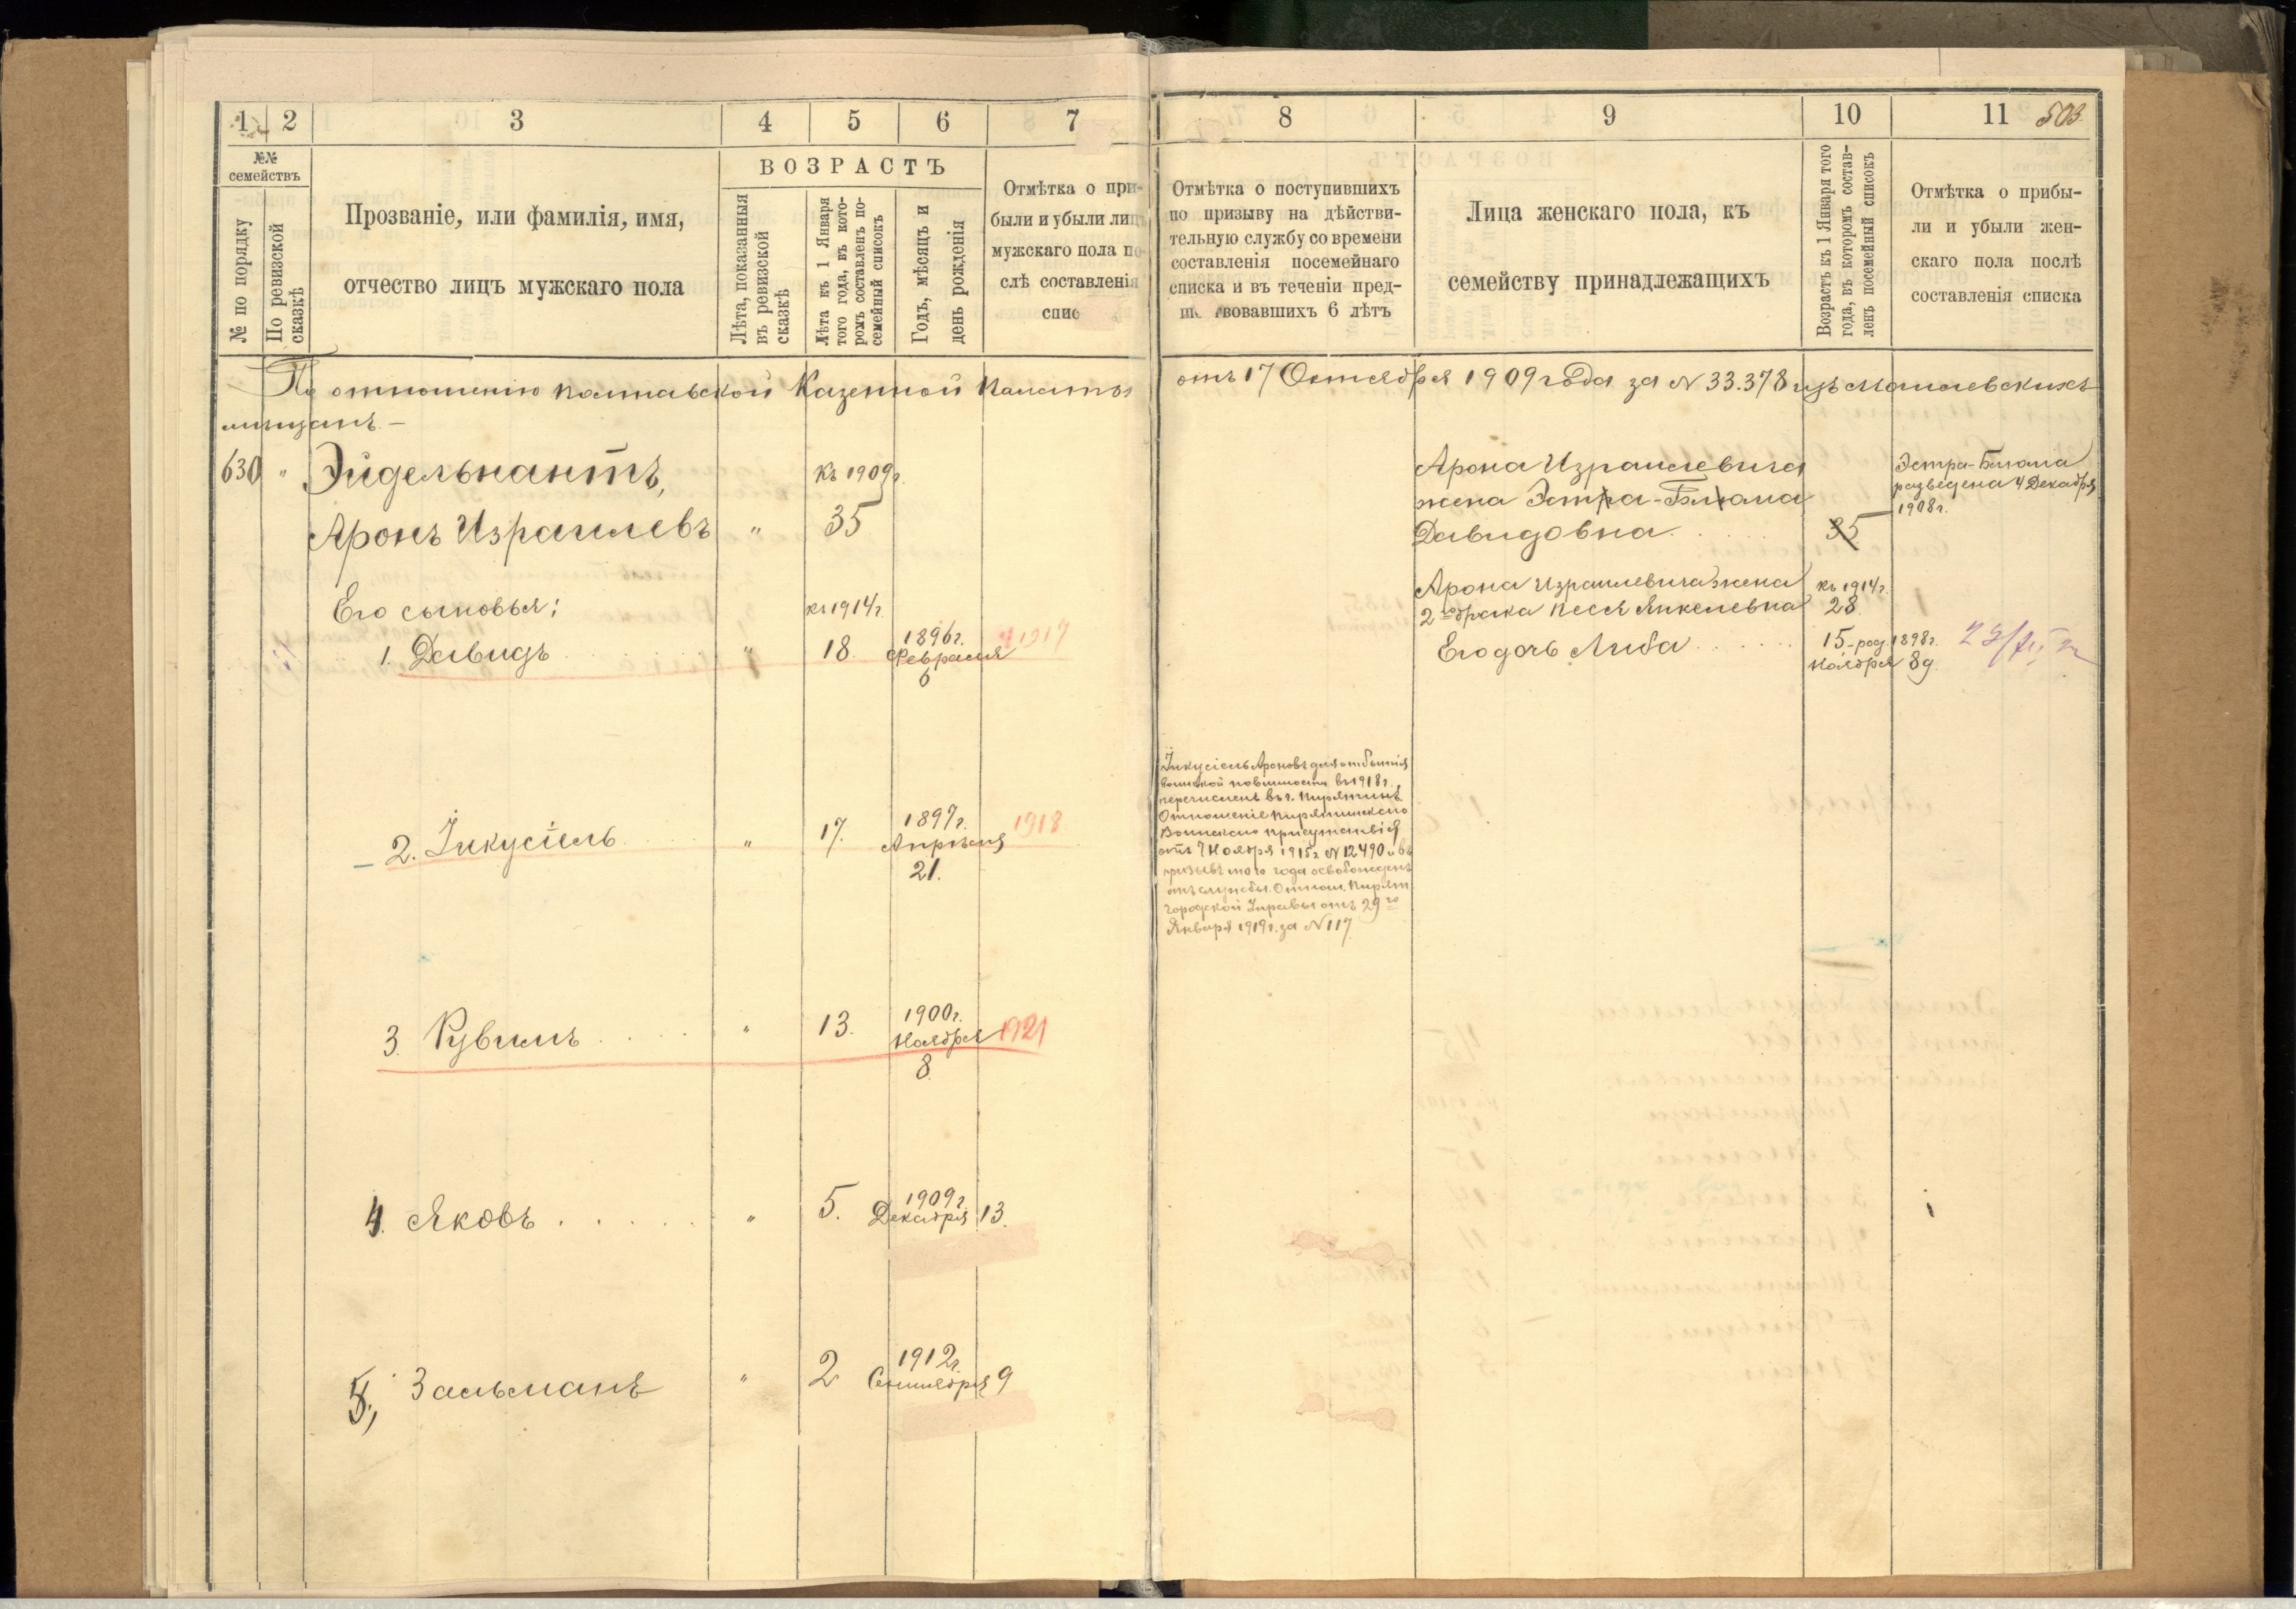 1 2 3 4 5 6 7
№№ семействъ
№ по порядку
По ревизской сказкѣ
Прозваніе, или фамилія, имя,
отчество лицъ мужскаго пола
ВОЗРАСТЪ
Лѣта, показанныя въ ревизской сказкѣ
Лѣта къ 1 Января того года, въ которомъ составленъ посемейный списокъ
Годъ, мѣсяцъ и день рожденія
Отмѣтка о при-
были и убыли лицъ
мужскаго пола по-
слѣ составленія
спис
8 9 10 11 503
Отмѣтка о поступившихъ
по призыву на дѣйстви-
тельную службу со времени
составленія посемейнаго
списка и въ теченіи пред-
ше твовавшихъ 6 лѣтъ
Лица женскаго пола, къ
семейству принадлежащихъ
Возрастъ къ 1 Января того
года, въ которомъ состав-
ленъ посемейный списокъ
Отмѣтка о прибы-
ли и убыли жен-
скаго пола послѣ
составленія списка
По отношенію Полтавской Казенной Палаты отъ 17 Октября 1909 года за N 33.378 изъ
мѣщанъ —
630 " Эйдельнантъ, къ 1909 г.
Аронъ Израилевъ " 35
Его сыновья: къ 1914 г.
1. Давидъ " 18 1896 г. Февраля 6 1917
2. Іикусіель " 17. 1897 г. Апрѣля 21. 1918
3. Рувимъ " 13. 1900 г. Ноября 8 1921
4. Яковъ " 5. 1909 г. Декабря 13.
5., Зальманъ " 2 1912 г. Сентября 9
Арона Израилевича
жена Эстра-Блюма
Давидовна. 35
Эстра-Блюма
разведена 4 Декабря
1908 г.
Арона Израилевича жена къ 1914 г.
2го брака Песся Янкелевна 28.
Его дочь Либа 15 - род. 1898 г.
Ноября 8 д.
Іикусіель Ароновъ для отбытія
воинской повинности въ 1918 г.
перечисленъ въ г. Пирятинъ.
Отношеніе Пирятинскаго
Воинскаго присутствія
отъ 7 Ноября 1915 г. N 12490 и въ
призывъ того года освобожденъ
отъ службы. Отнош. Пирят.
городской Управы отъ 29го
Января 1919 г. за N 117